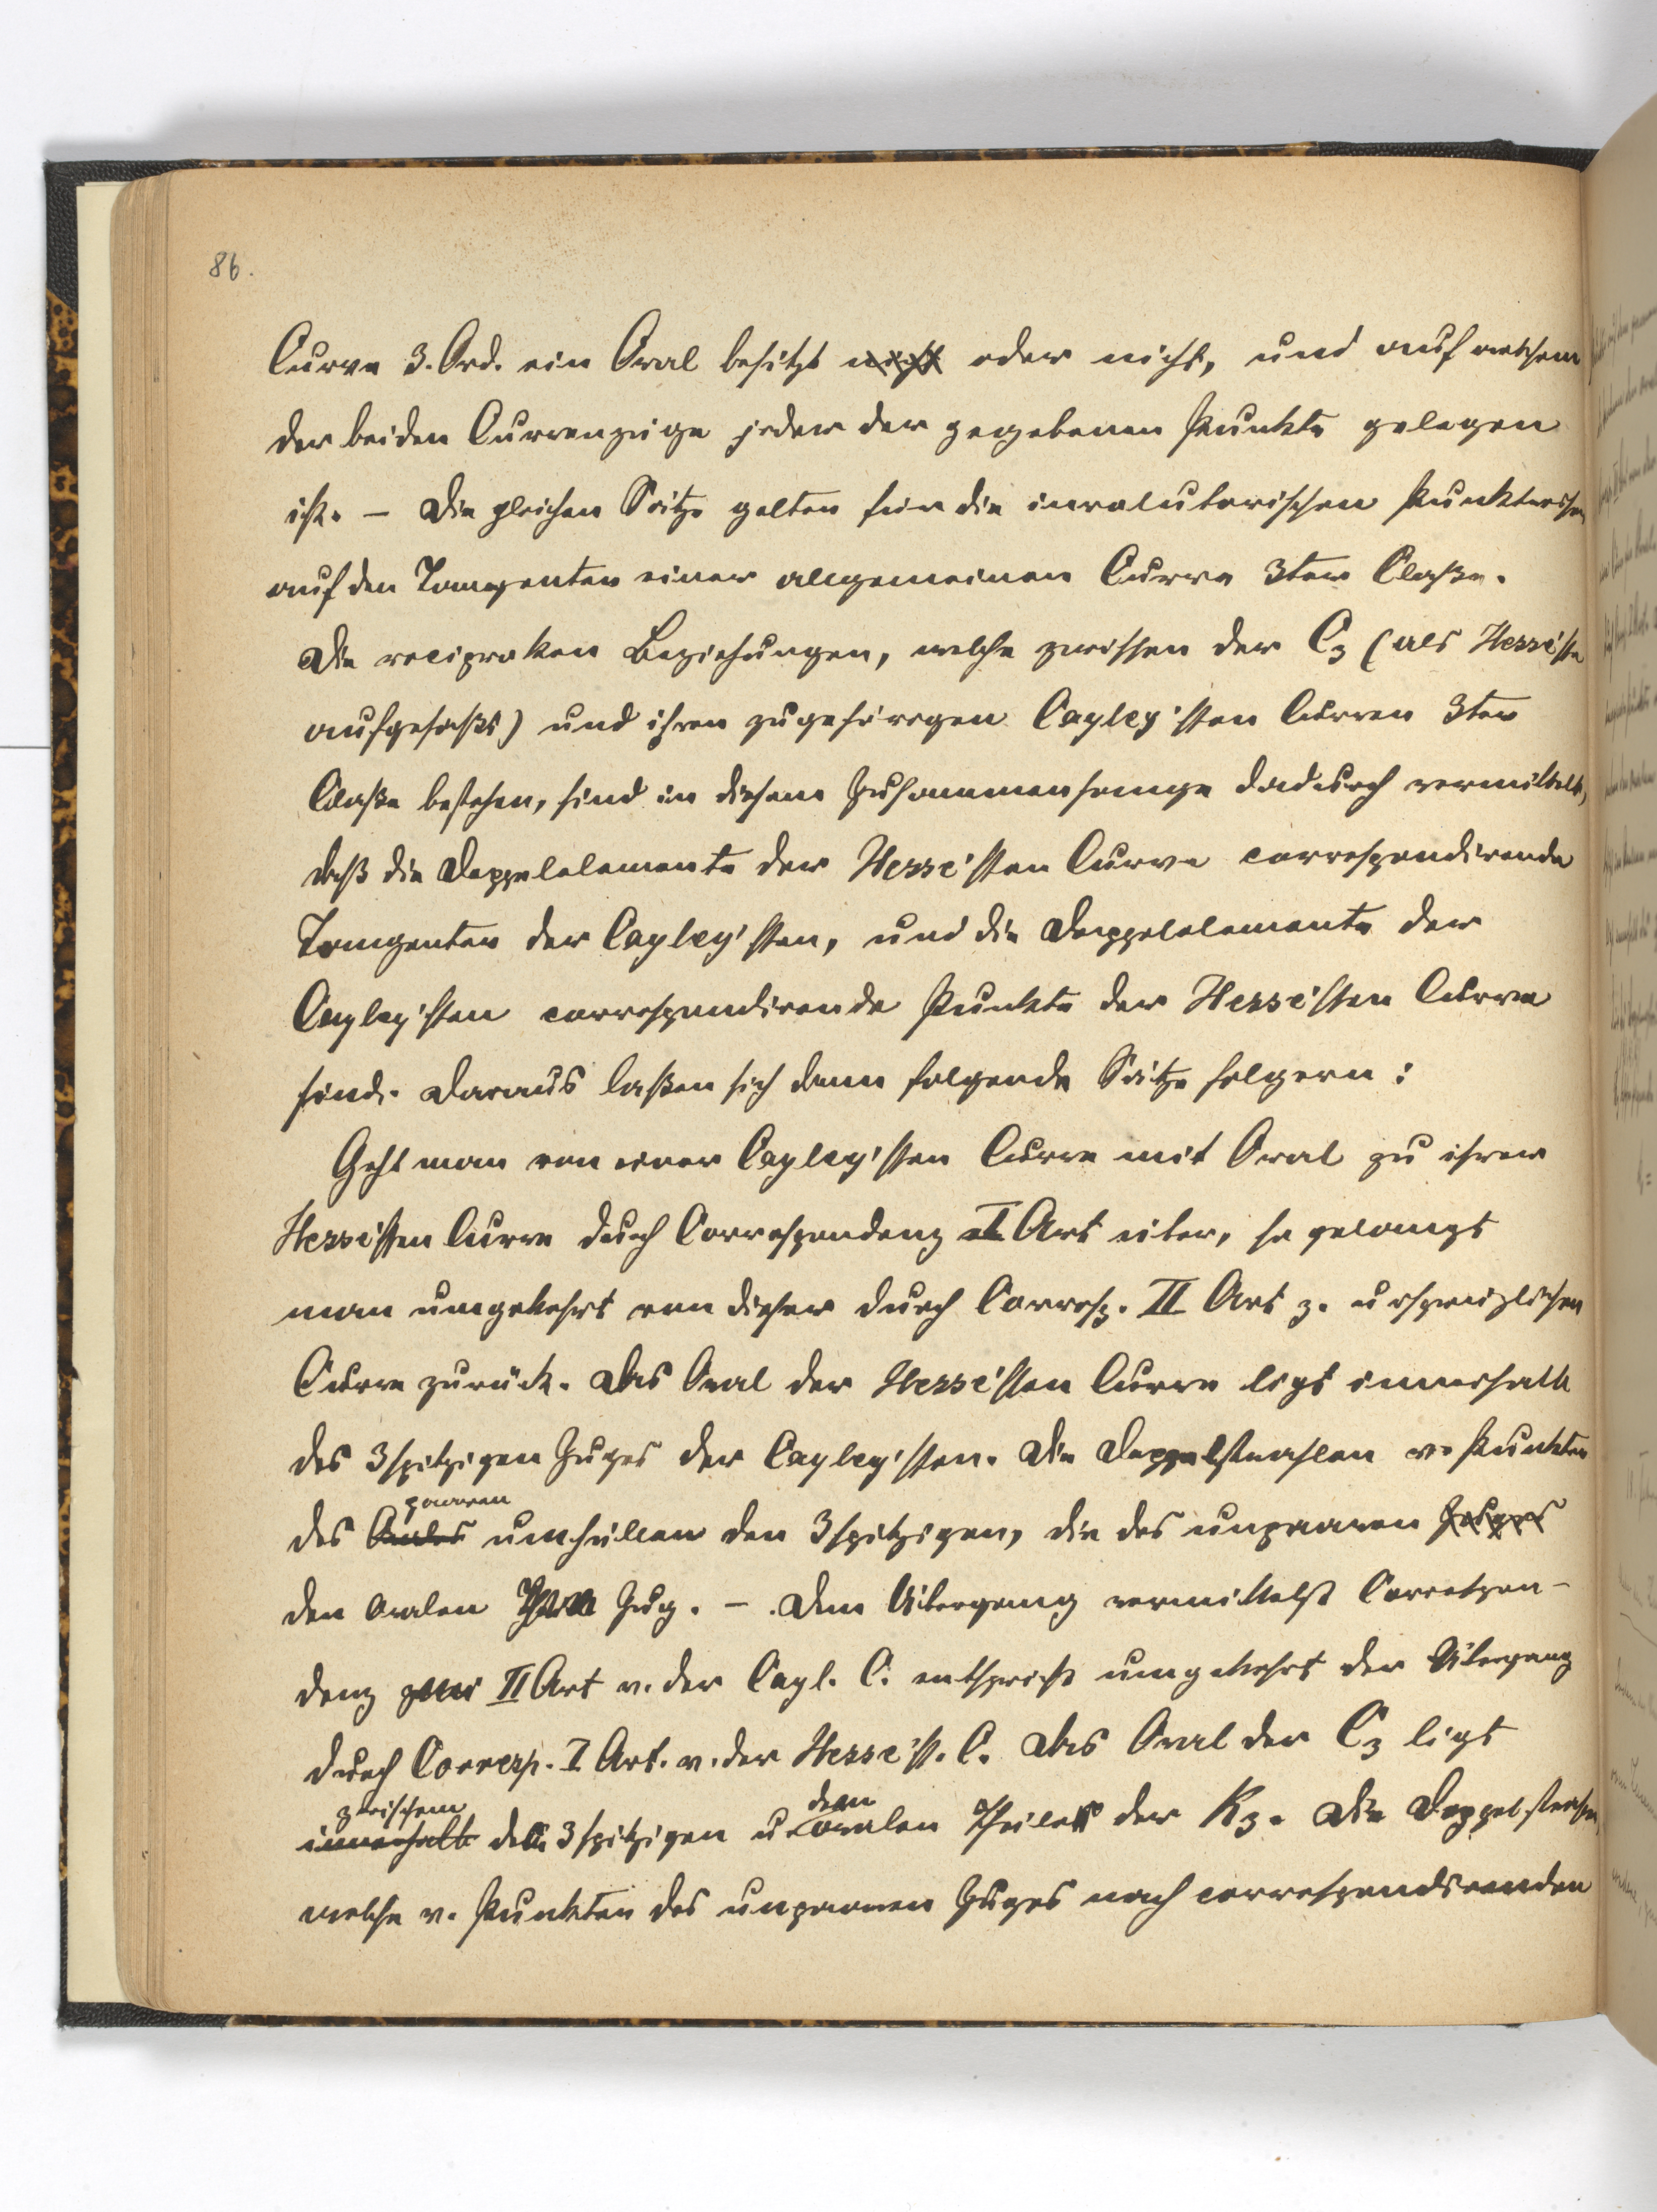 86.
Curve 3. Ord. ein Oval besitzt nicht oder nicht, und auf welchem
der beiden Curvenzüge jeder der gegebenen Punkte gelegen
ist. – Die gleichen Sätze gelten für die involutorischen Punktreihen
auf den Tangenten einer allgemeinen Curve 3ter Claße.
Die reciproken Beziehungen, welche zwischen der C3 (als Hesse'sche
aufgefaßt) und ihren zugehörigen Cayley'schen Curven 3ter
Claße bestehen, sind in diesem Zusammenhange dadurch vermittelt,
daß die Doppelelemente der Hesse'schen Curve correspondirende
Tangenten der Cayley'schen, und die Doppelelemente der
Cayley'schen correspondirende Punkte der Hesse'schen Curve
sind. Daraus laßen sich dann folgende Sätze folgern:
Geht man von einer Cayley'schen Curve mit Oval zu ihrer
Hesse'schen Curve durch Correspondenz I Art über, so gelangt
man umgekehrt von dieser durch Corresp. II Art z. ursprünglichen
Curve zurück. Das Oval der Hesse'schen Curve ligt innerhalb
des 3spitzigen Zuges der Cayley'schen. Die Doppelstrahlen v. Punkten
paaren
des Ovales umhüllen den 3spitzigen, die des unpaaren Zuges
den ovalen Zug. – Dem Übergang vermittelst Correspon-
denz II Art v. der Cayl. C. entspricht umgekehrt der Übergang
durch Corresp. I Art. v. der Hesse'sch. C. Das Oval der C3 ligt
zwischem dem
innerhalb dem 3spitzigen u. ovalen Theile der K3. Die Doppelstrahlen,
welche v. Punkten des unpaaren Zuges nach correspondirenden